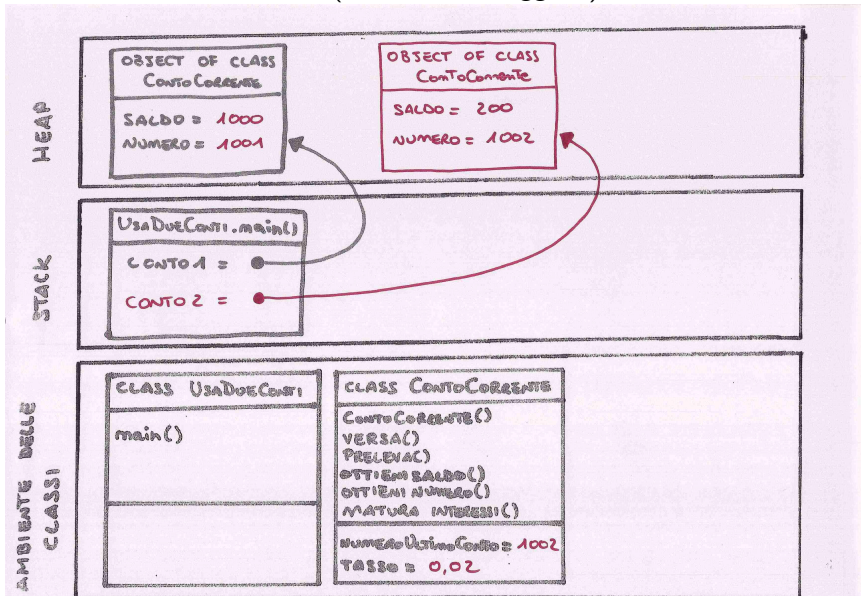 HEAP
OBJECT OF CLASS
CONTOCORRENTE
SALDO = 1000
NUMERO = 1001
OBJECT OF CLASS
ContoCorrente
SALDO = 200
NUMERO = 1002
STACK
UsaDueConti.main()
CONTO1 =
CONTO2 =
AMBIENTE DELLE
CLASSI
CLASS UsaDueConti
main()
CLASS CONTOCORRENTE
CONTOCORRENTE()
VERSA()
PRELEVA()
OTTIENI SALDO()
OTTIENI NUMERO()
MATURA INTERESSI()
NUMEROULTIMOCONTO = 1002
TASSO = 0,02